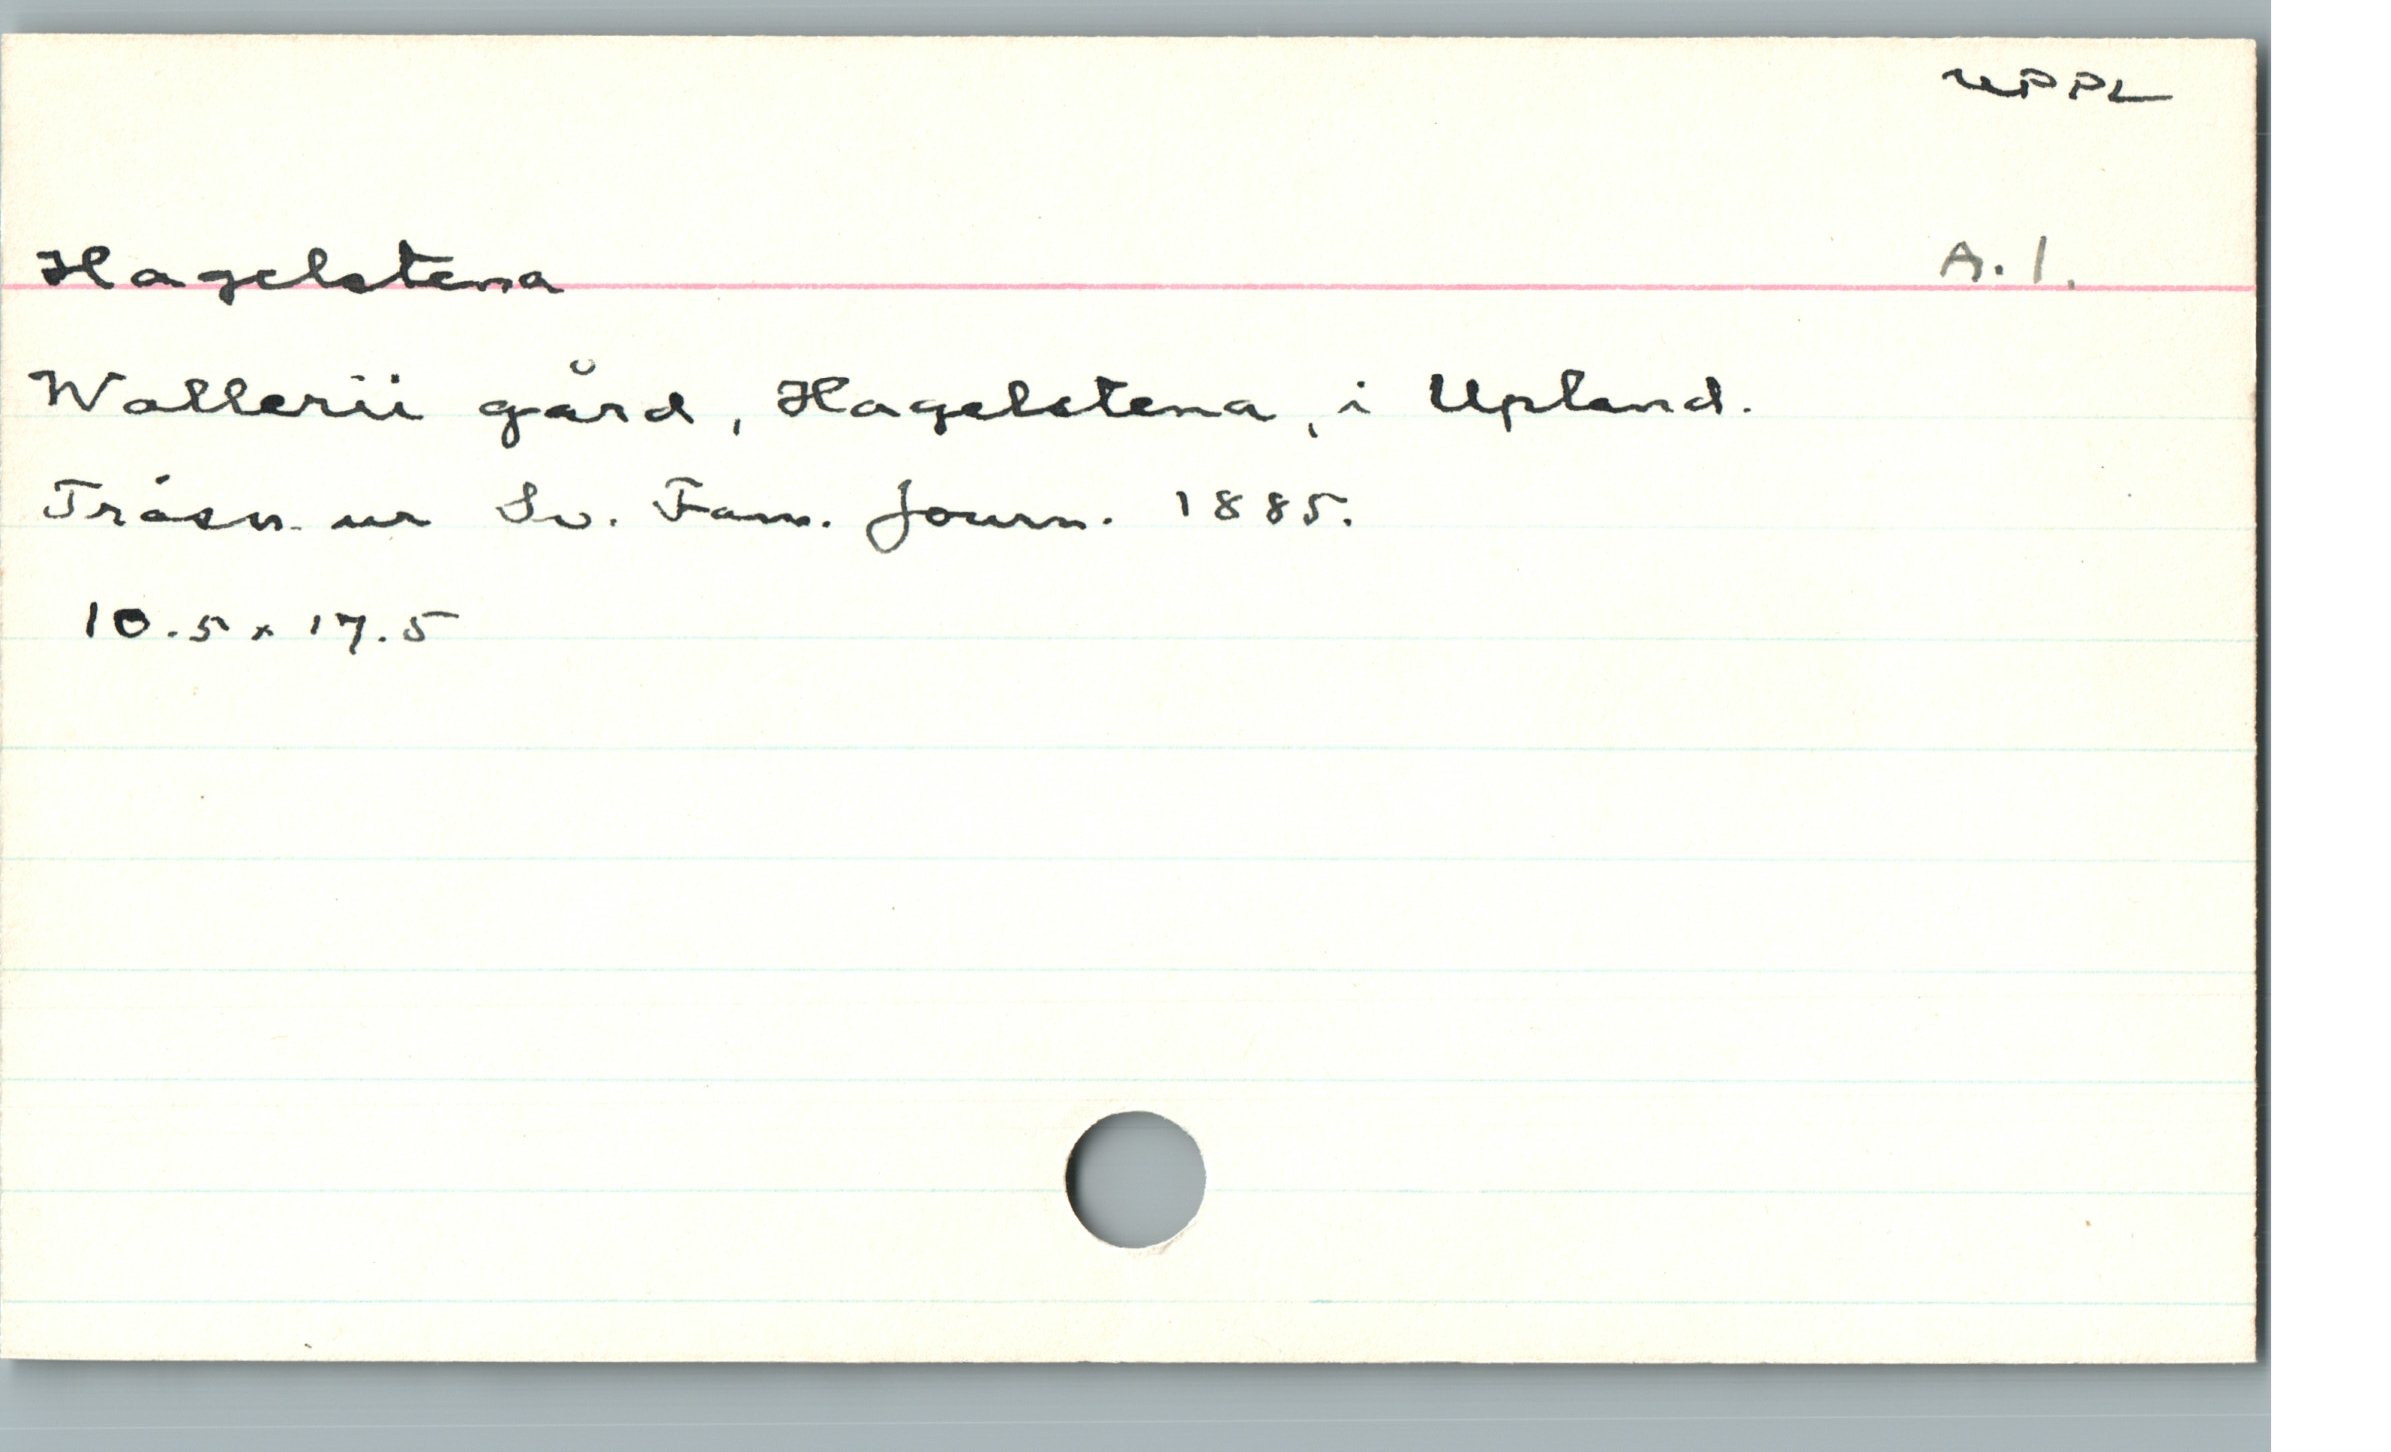 UPPL
Hagelstena A. 1.
Wallerii gård, Hagelstena, i Upland.
Träsn. ur Sv. Fam. Journ. 1885.
10.5 x 17.5